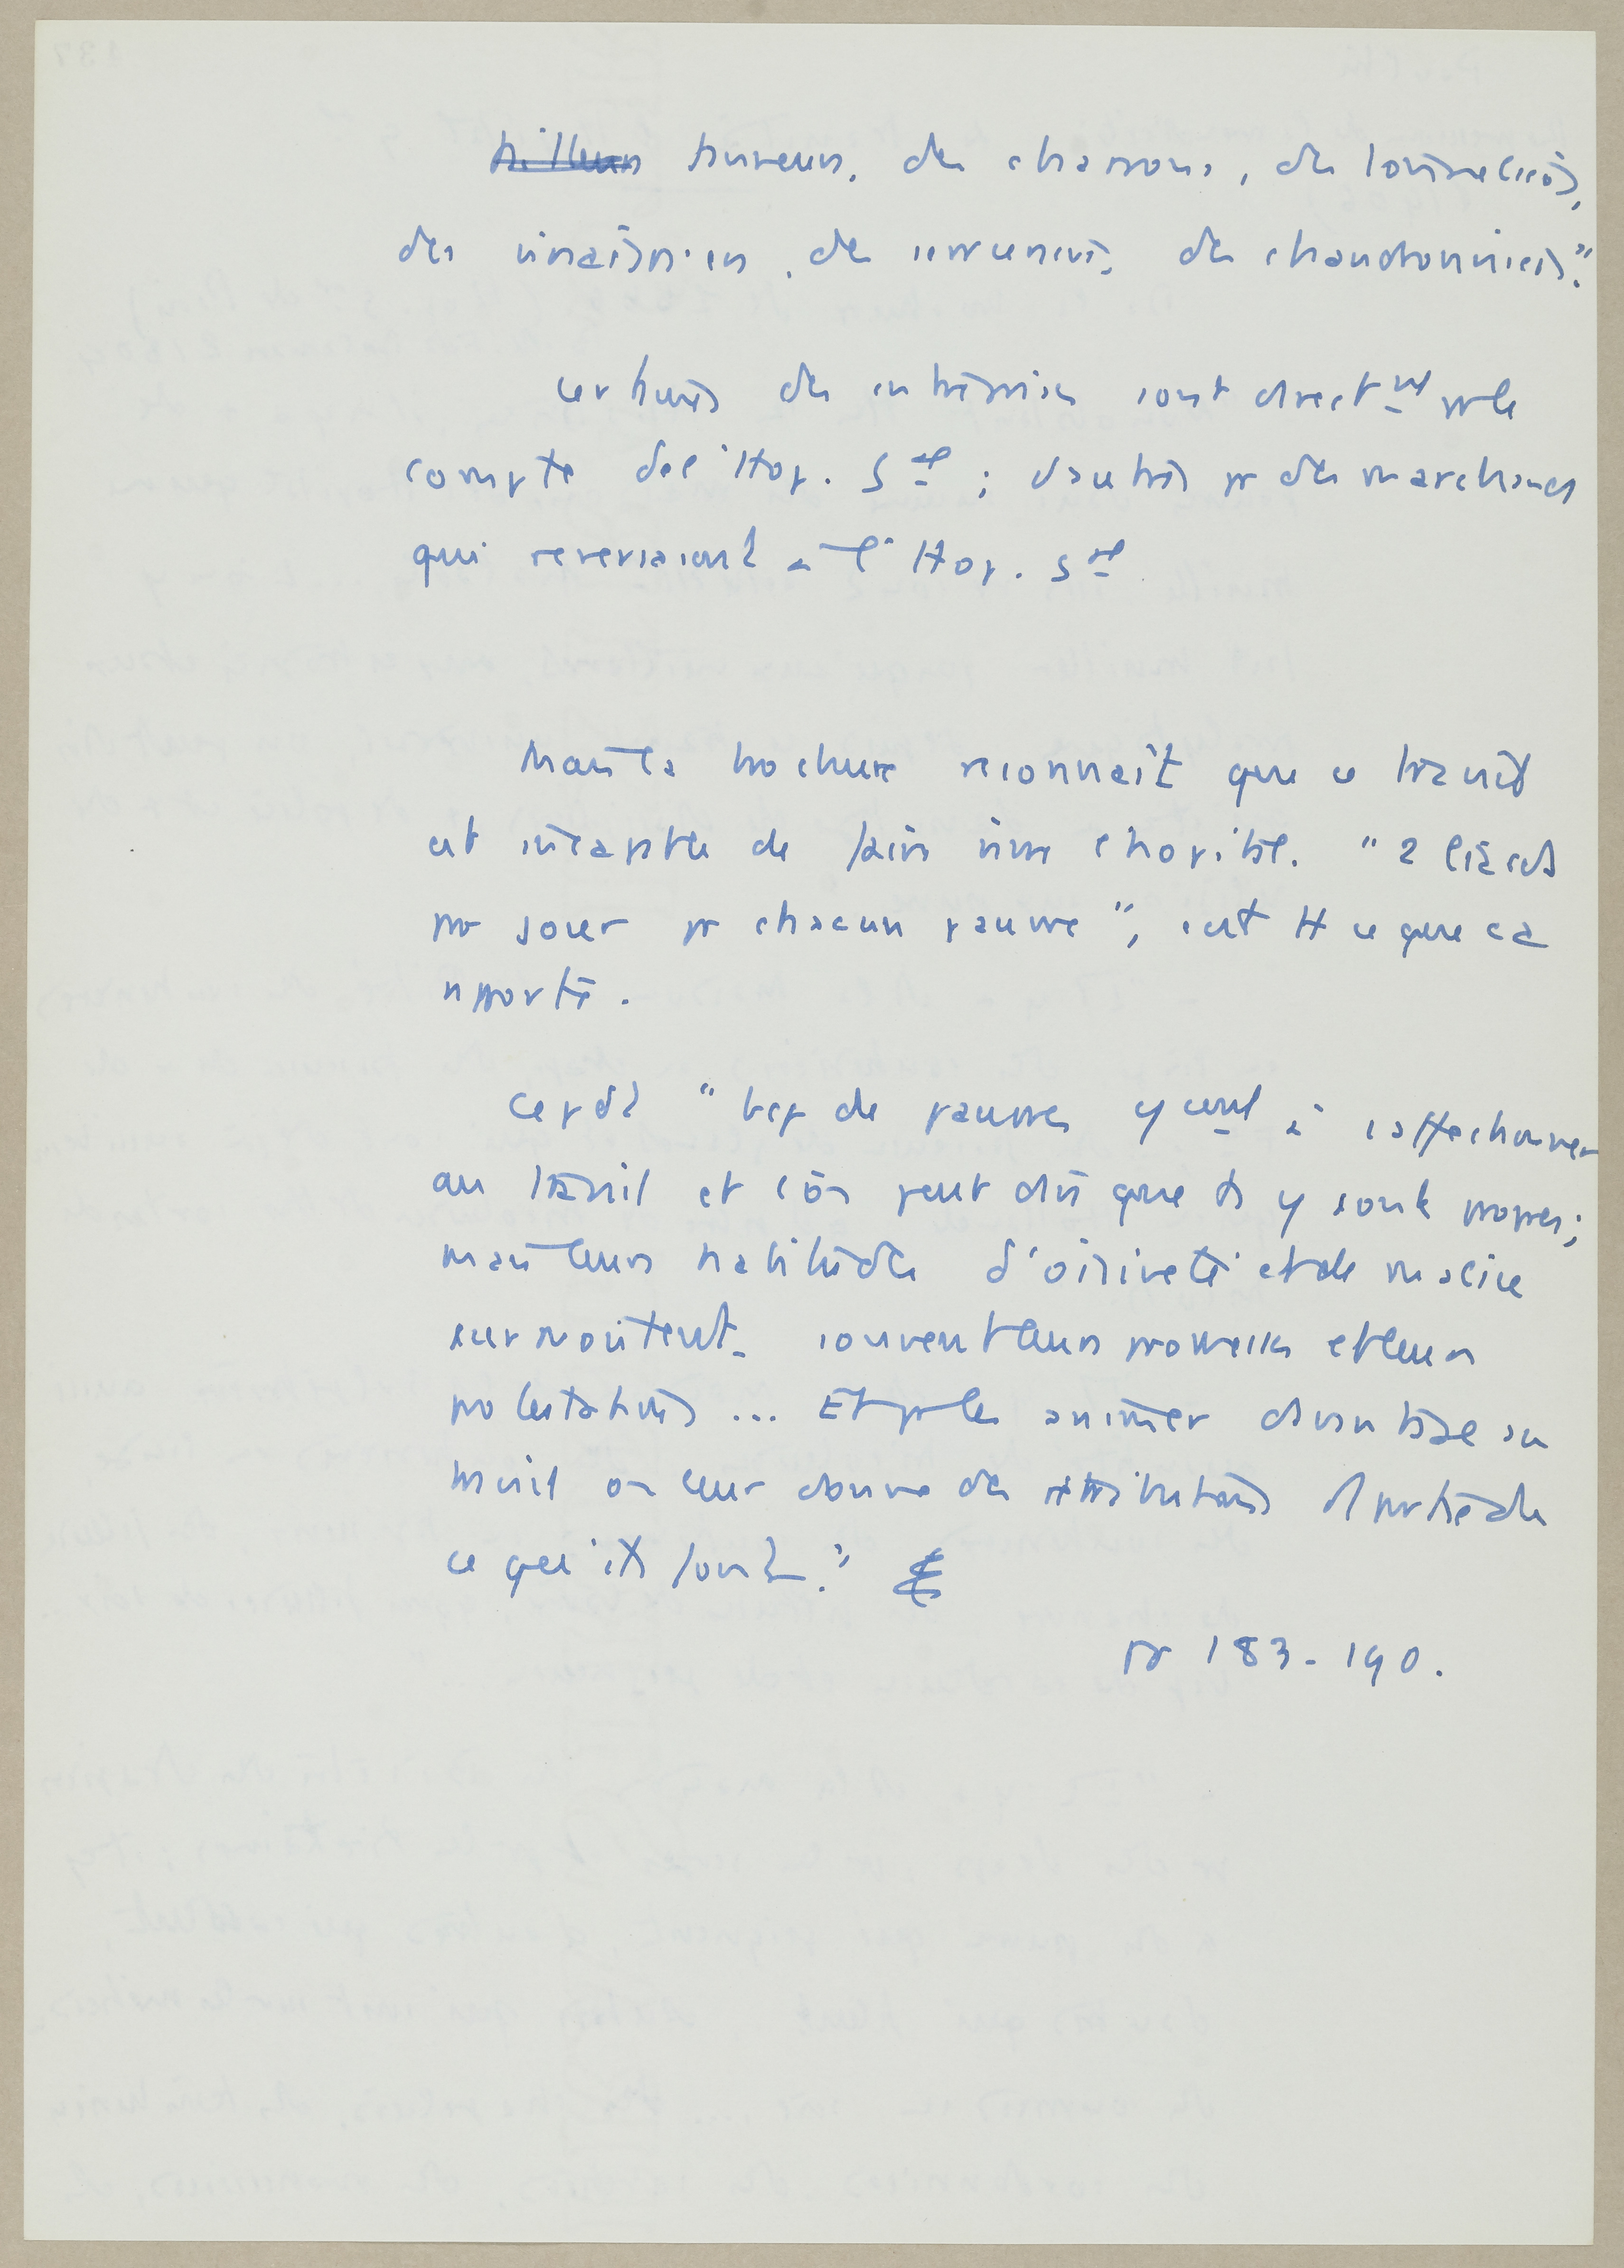 buveurs, des chassons, des tonneliers,
des vinaigriers, des serruriers, des chaudronniers."
Certaines des entreprises sont direct^mt pr le
compte de l'Hop. G^al ; d'autres pr des marchands
qui reversaient à l'Hop. G^al
Mais la brochure reconnaît que ce travail
est incapable de faire vivre l'hopital. "2 liards
par jour pr chacun pauvre", c'est tt ce que ca
rapporte.
Cepdt "bcp de pauvres cy cent à s'affectionner
au travail et l'on peut dire que ts y sont propres ;
mais leurs habitudes d'oisiveté et de malice
surmontent souvent leurs promesses et leurs
protestations ... Et pr les animer davantage au
travail on leur donne des rétributions
ce qu'ils font."
pp 183-190.